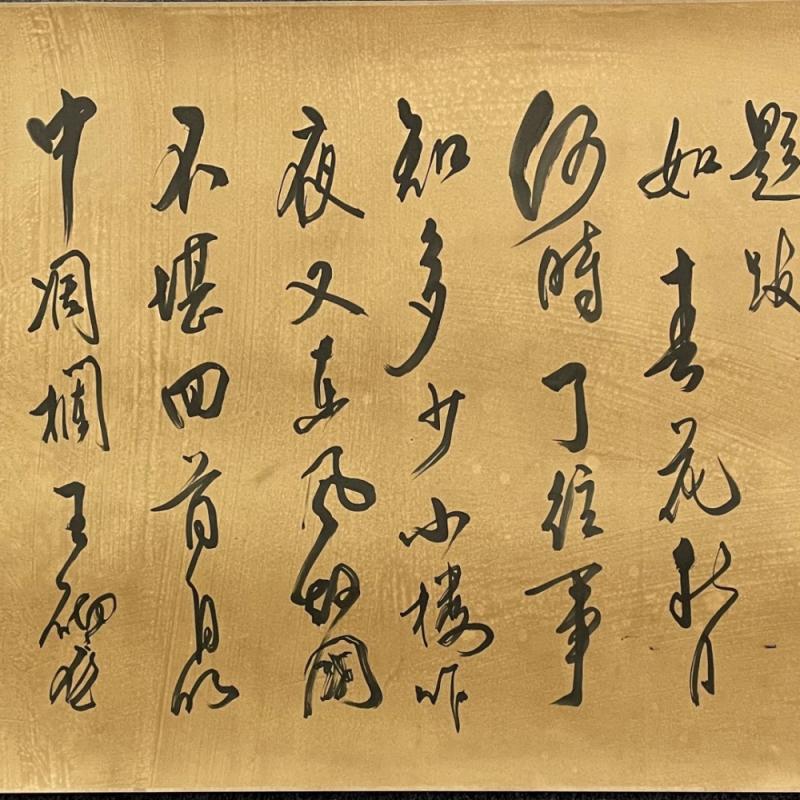 題跋
如春花秋月
何時了往事
知多少小樓昨
夜又東風故國
不堪回首月明
中凋欄玉砌應